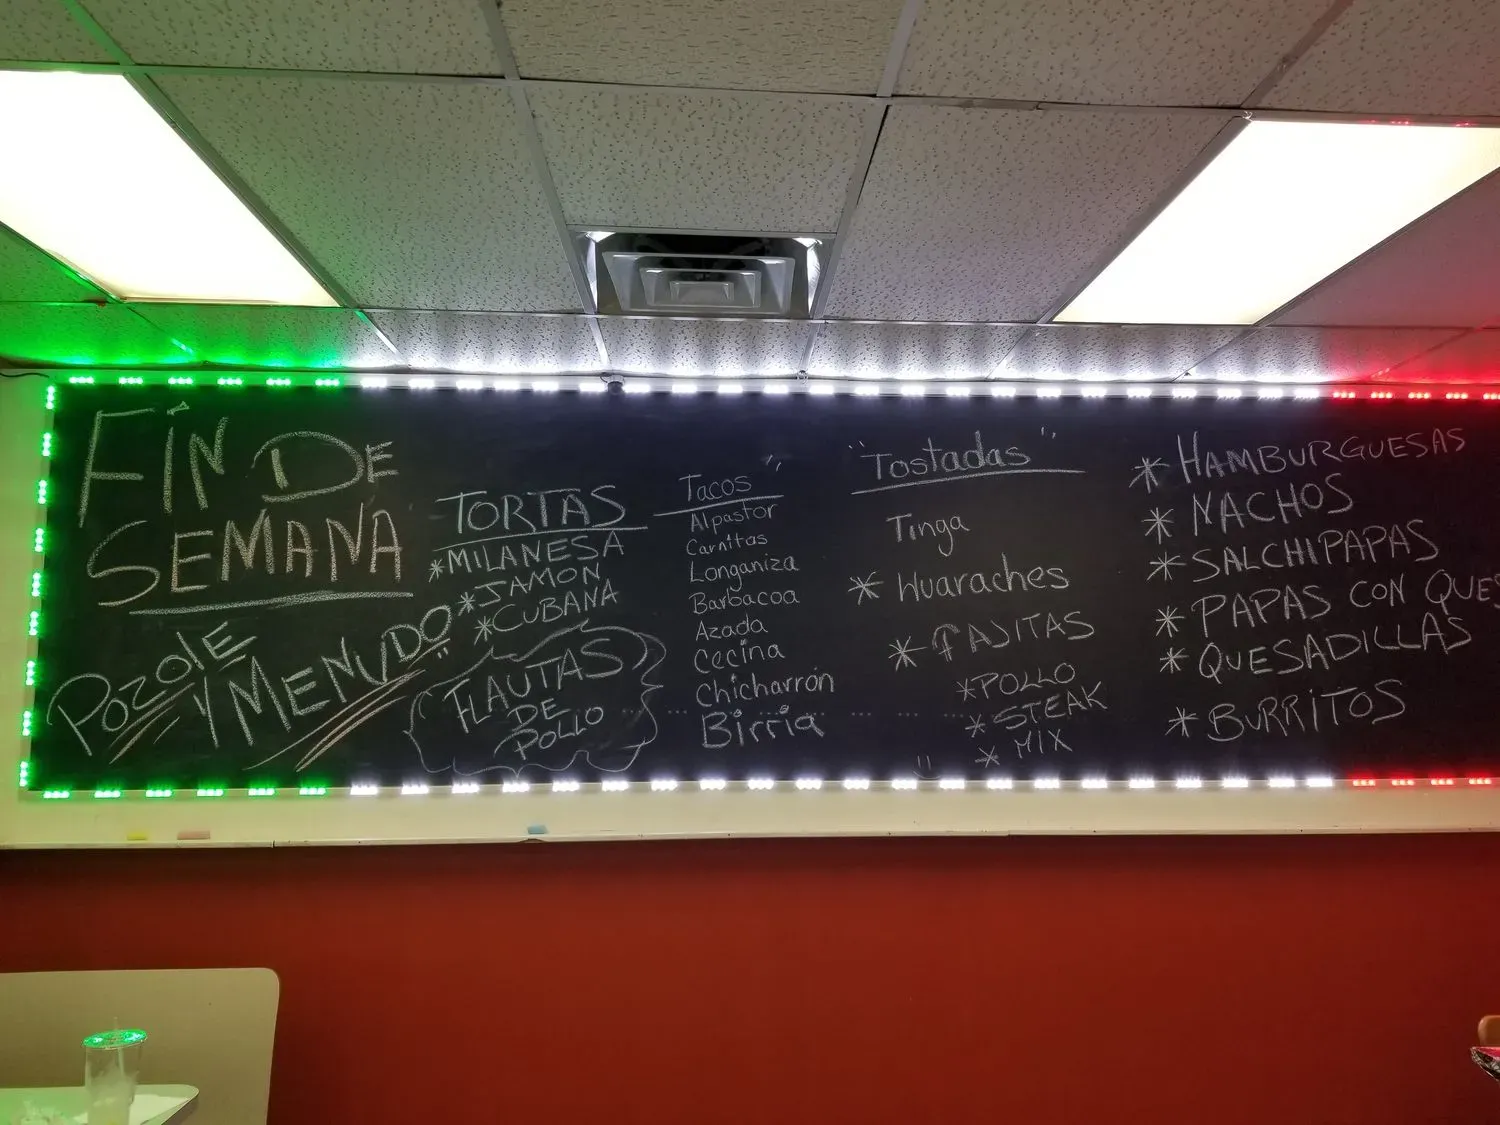 FIN DE
SEMANA
POZOLE
Y MENUDO
TORTAS
*MILANESA
*JAMON
*CUBANA
FLAUTAS
DE
POLLO
Tacos"
Alpastor
Carnitas
Longaniza
Barbacoa
Azada
Cecina
Chicharrón
Birria
"Tostadas"
Tinga
* Huaraches
* FAJITAS
*POLLO
*STEAK
* MIX
* HAMBURGUESAS
* NACHOS
* SALCHIPAPAS
* PAPAS CON QUES
* QUESADILLAS
* BURRITOS